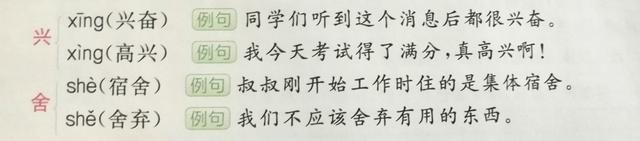 兴 xīng(兴奋) 例句 同学们听到这个消息后都很兴奋。
xìng(高兴) 例句 我今天考试得了满分,真高兴啊!
舍 shè(宿舍) 例句 叔叔刚开始工作时住的是集体宿舍。
shě(舍弃) 例句 我们不应该舍弃有用的东西。